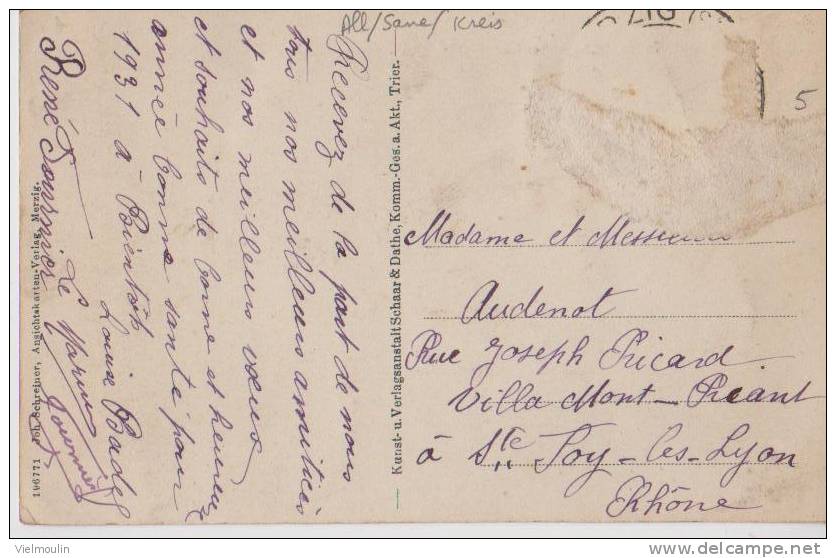 All/Sane/Kreis
5
Recevez de la part de nous
tous nos meilleurs amitiées
et nos meilleurs vœux
et souhaits de bonne et heureuse
année bonne santé pour
1931 à Bientôt
Louise Badel
Le
René Fournier
Fournier
Madame et Messieurs
Audenot
Rue Joseph Ricard
Villa Mont-Riant
à Ste Foy-les-Lyon
Rhône
Kunst- u. Verlagsanstalt Schaar & Dathe, Komm.-Ges. a. Akt., Trier.
196771 Joh. Schreiner, Ansichtskarten-Verlag, Merzig.
Vielmoulin
delcampe.net